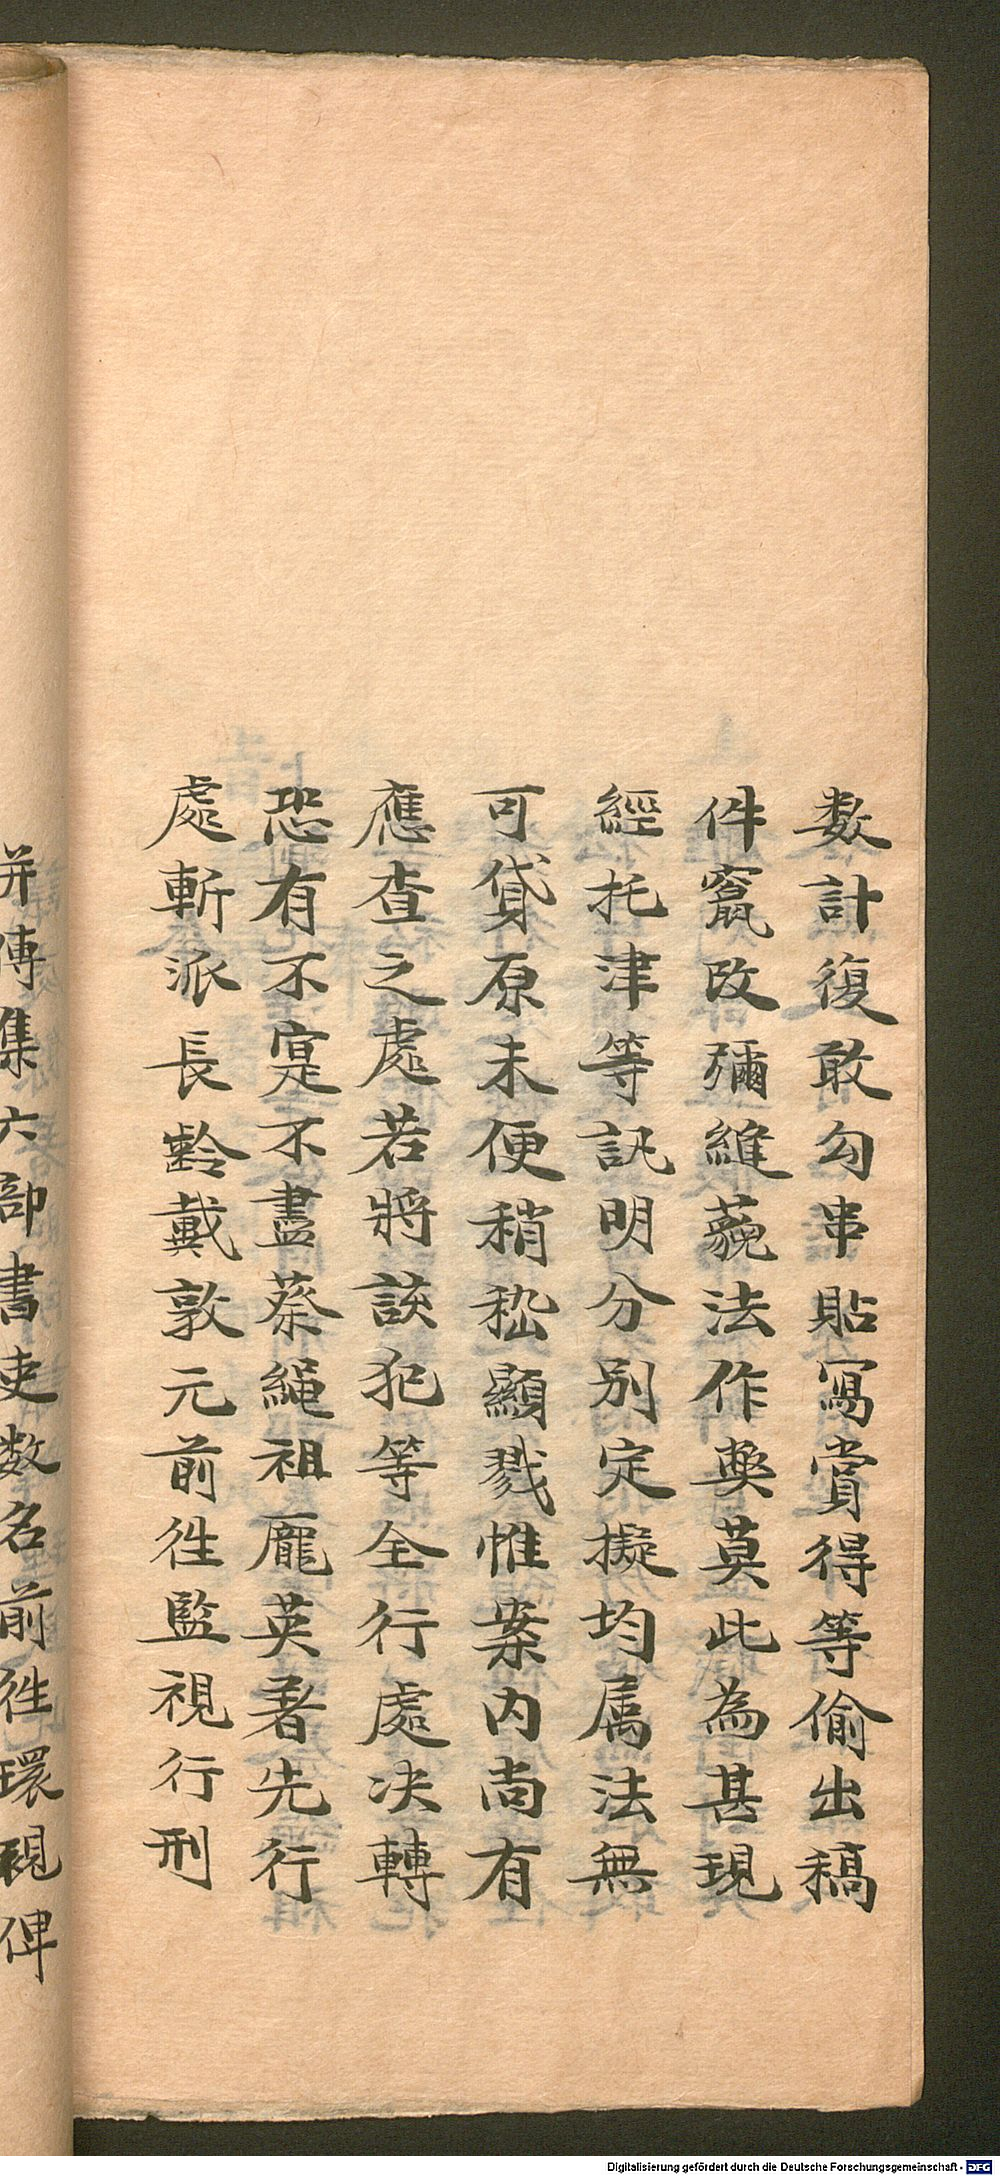 数計復敢勾串貼寫賞得等偷出稿
件竄改彌縫藐法作獘莫此為甚現
經托津等訊明分別定擬均属法無
可貸原未便稍稽顯戮惟案内尚有
應查之處若將該犯等全行處决轉
恐有不寔不盡蔡繩祖龎英著先行
處斬派長齡戴敦元前徃監視行刑
并傳集六部書吏数名前徃環視俾
Digitalisierung gefördert durch die Deutsche Forschungsgemeinschaft - DFG